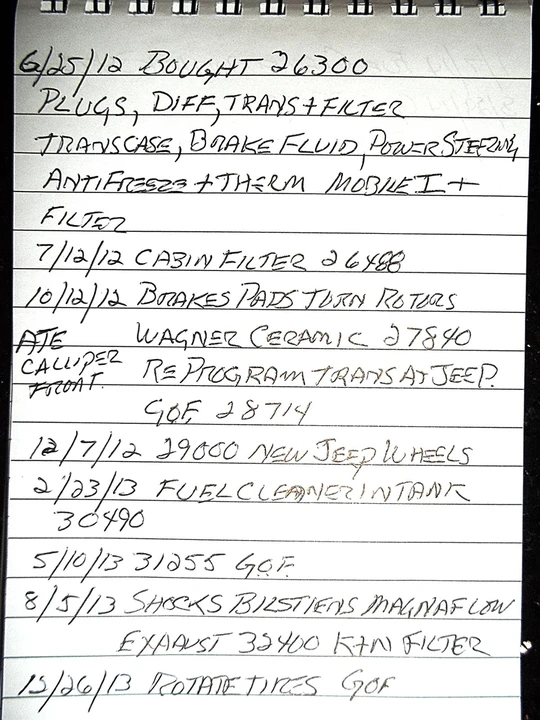 6/25/12 BOUGHT 26300
PLUGS, DIFF, TRANS + FILTER
TRANSCASE, BRAKE FLUID, POWER STEERING
ANTIFREEZE + THERM MOBILE I +
FILTER
7/12/12 CABIN FILTER 26488
10/12/12 BRAKES PADS TURN ROTORS
ATE WAGNER CERAMIC 27840
CALLIPER REPROGRAM TRANS AT JEEP.
FRONT. GOF 28714
12/7/12 29000 NEW JEEP WHEELS
2/23/13 FUEL CLEANER IN TANK
30490
5/10/13 31255 GOF
8/5/13 SHOCKS BILSTIENS MAGNAFLOW
EXHAUST 32400 K+N FILTER
12/26/13 ROTATE TIRES GOF